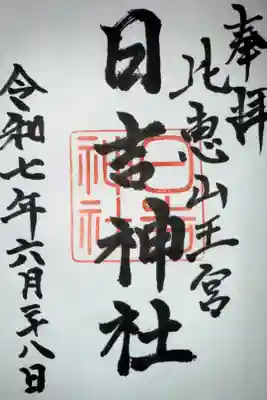 奉拝
比恵山王宮
日吉神社
日吉神社
令和七年六月二十八日